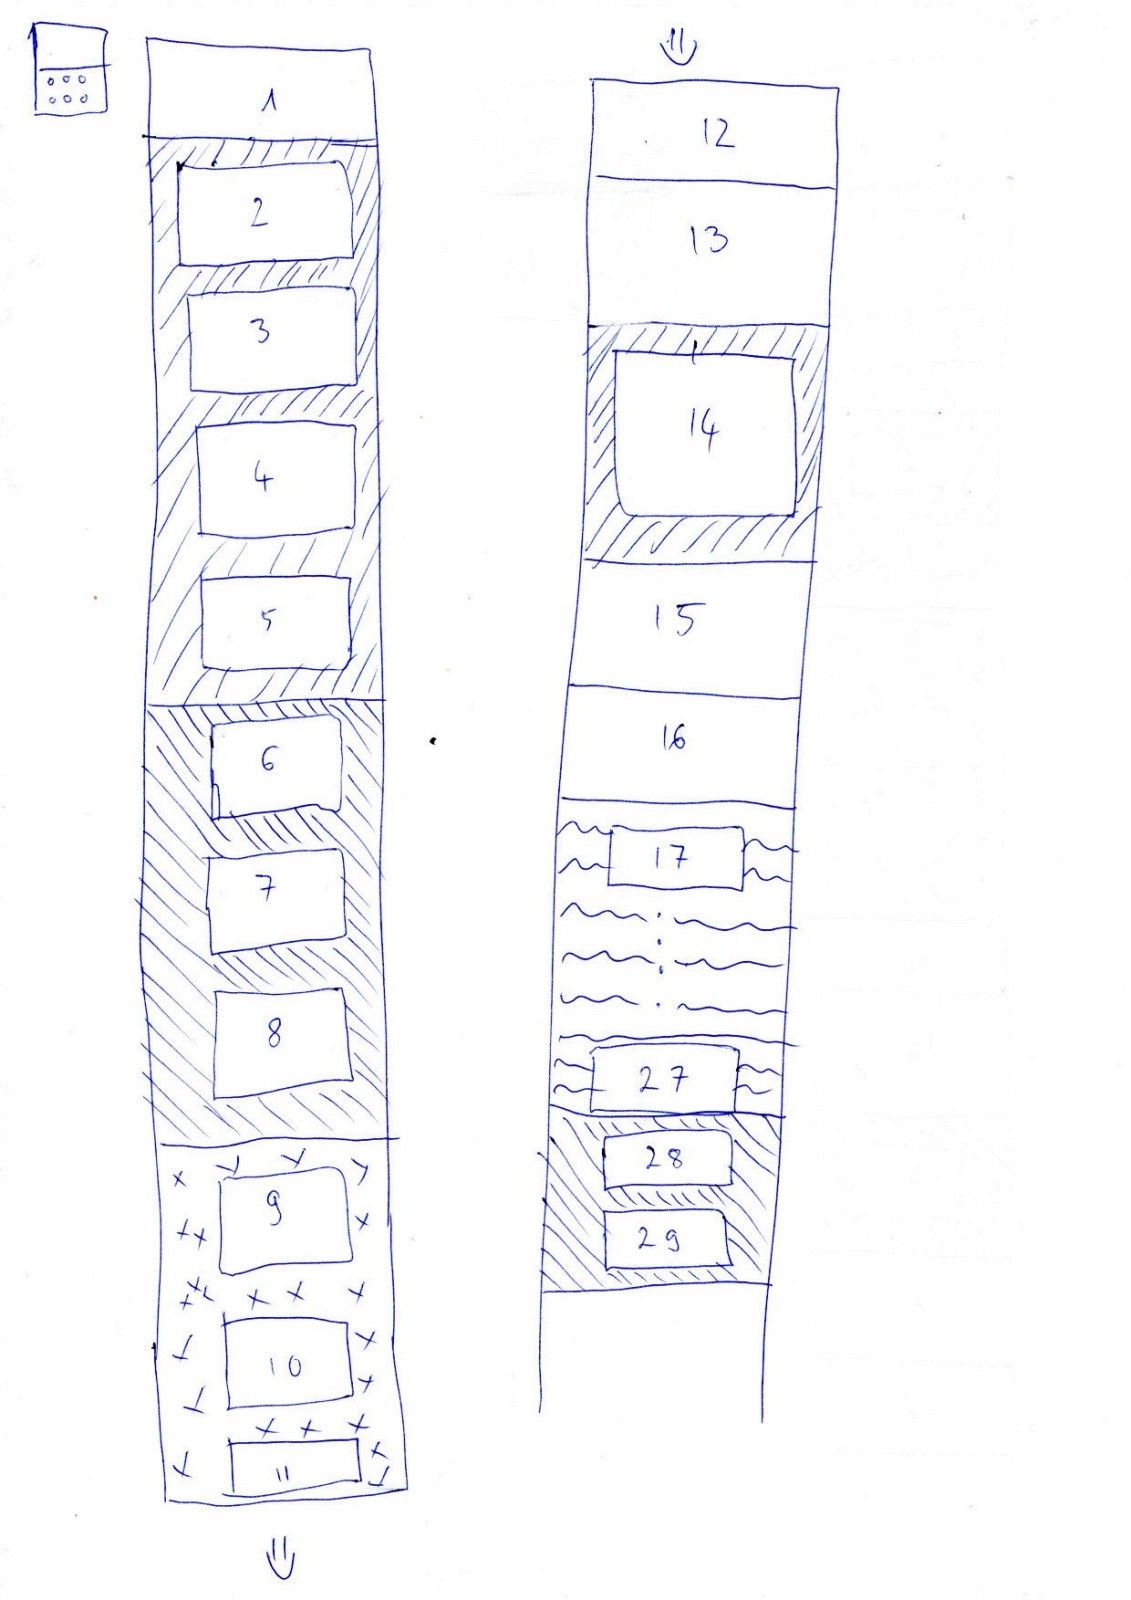 1
2
3
4
5
6
7
8
9
10
11
12
13
14
15
16
17
27
28
29